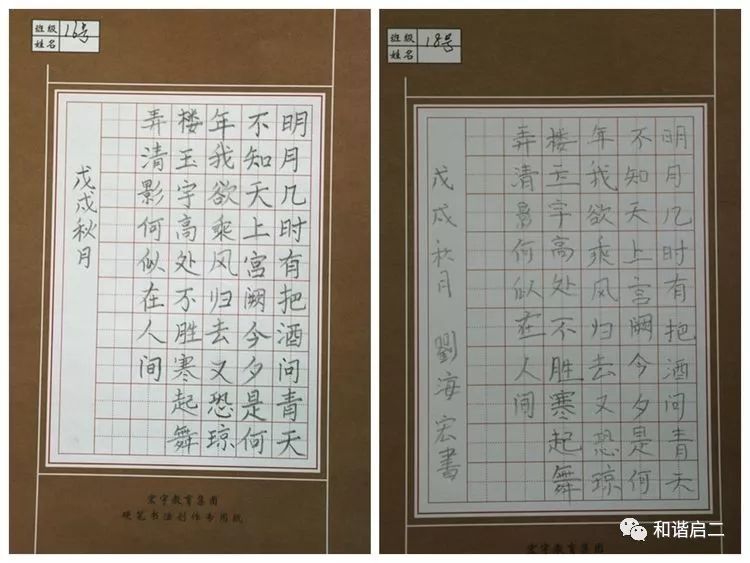 班级
姓名
16号
明月几时有把酒问青天
不知天上宫阙今夕是何
年我欲乘风归去又恐琼
楼玉宇高处不胜寒起舞
弄清影何似在人间
戊戌秋月
宏宇教育集团
硬笔书法创作专用纸
班级
姓名
18号
明月几时有把酒问青天
不知天上宫阙今夕是何
年我欲乘风归去又恐琼
楼玉宇高处不胜寒起舞
弄清影何似在人间
戊戌秋月 劉海宏書
宏宇教育集团
和谐启二